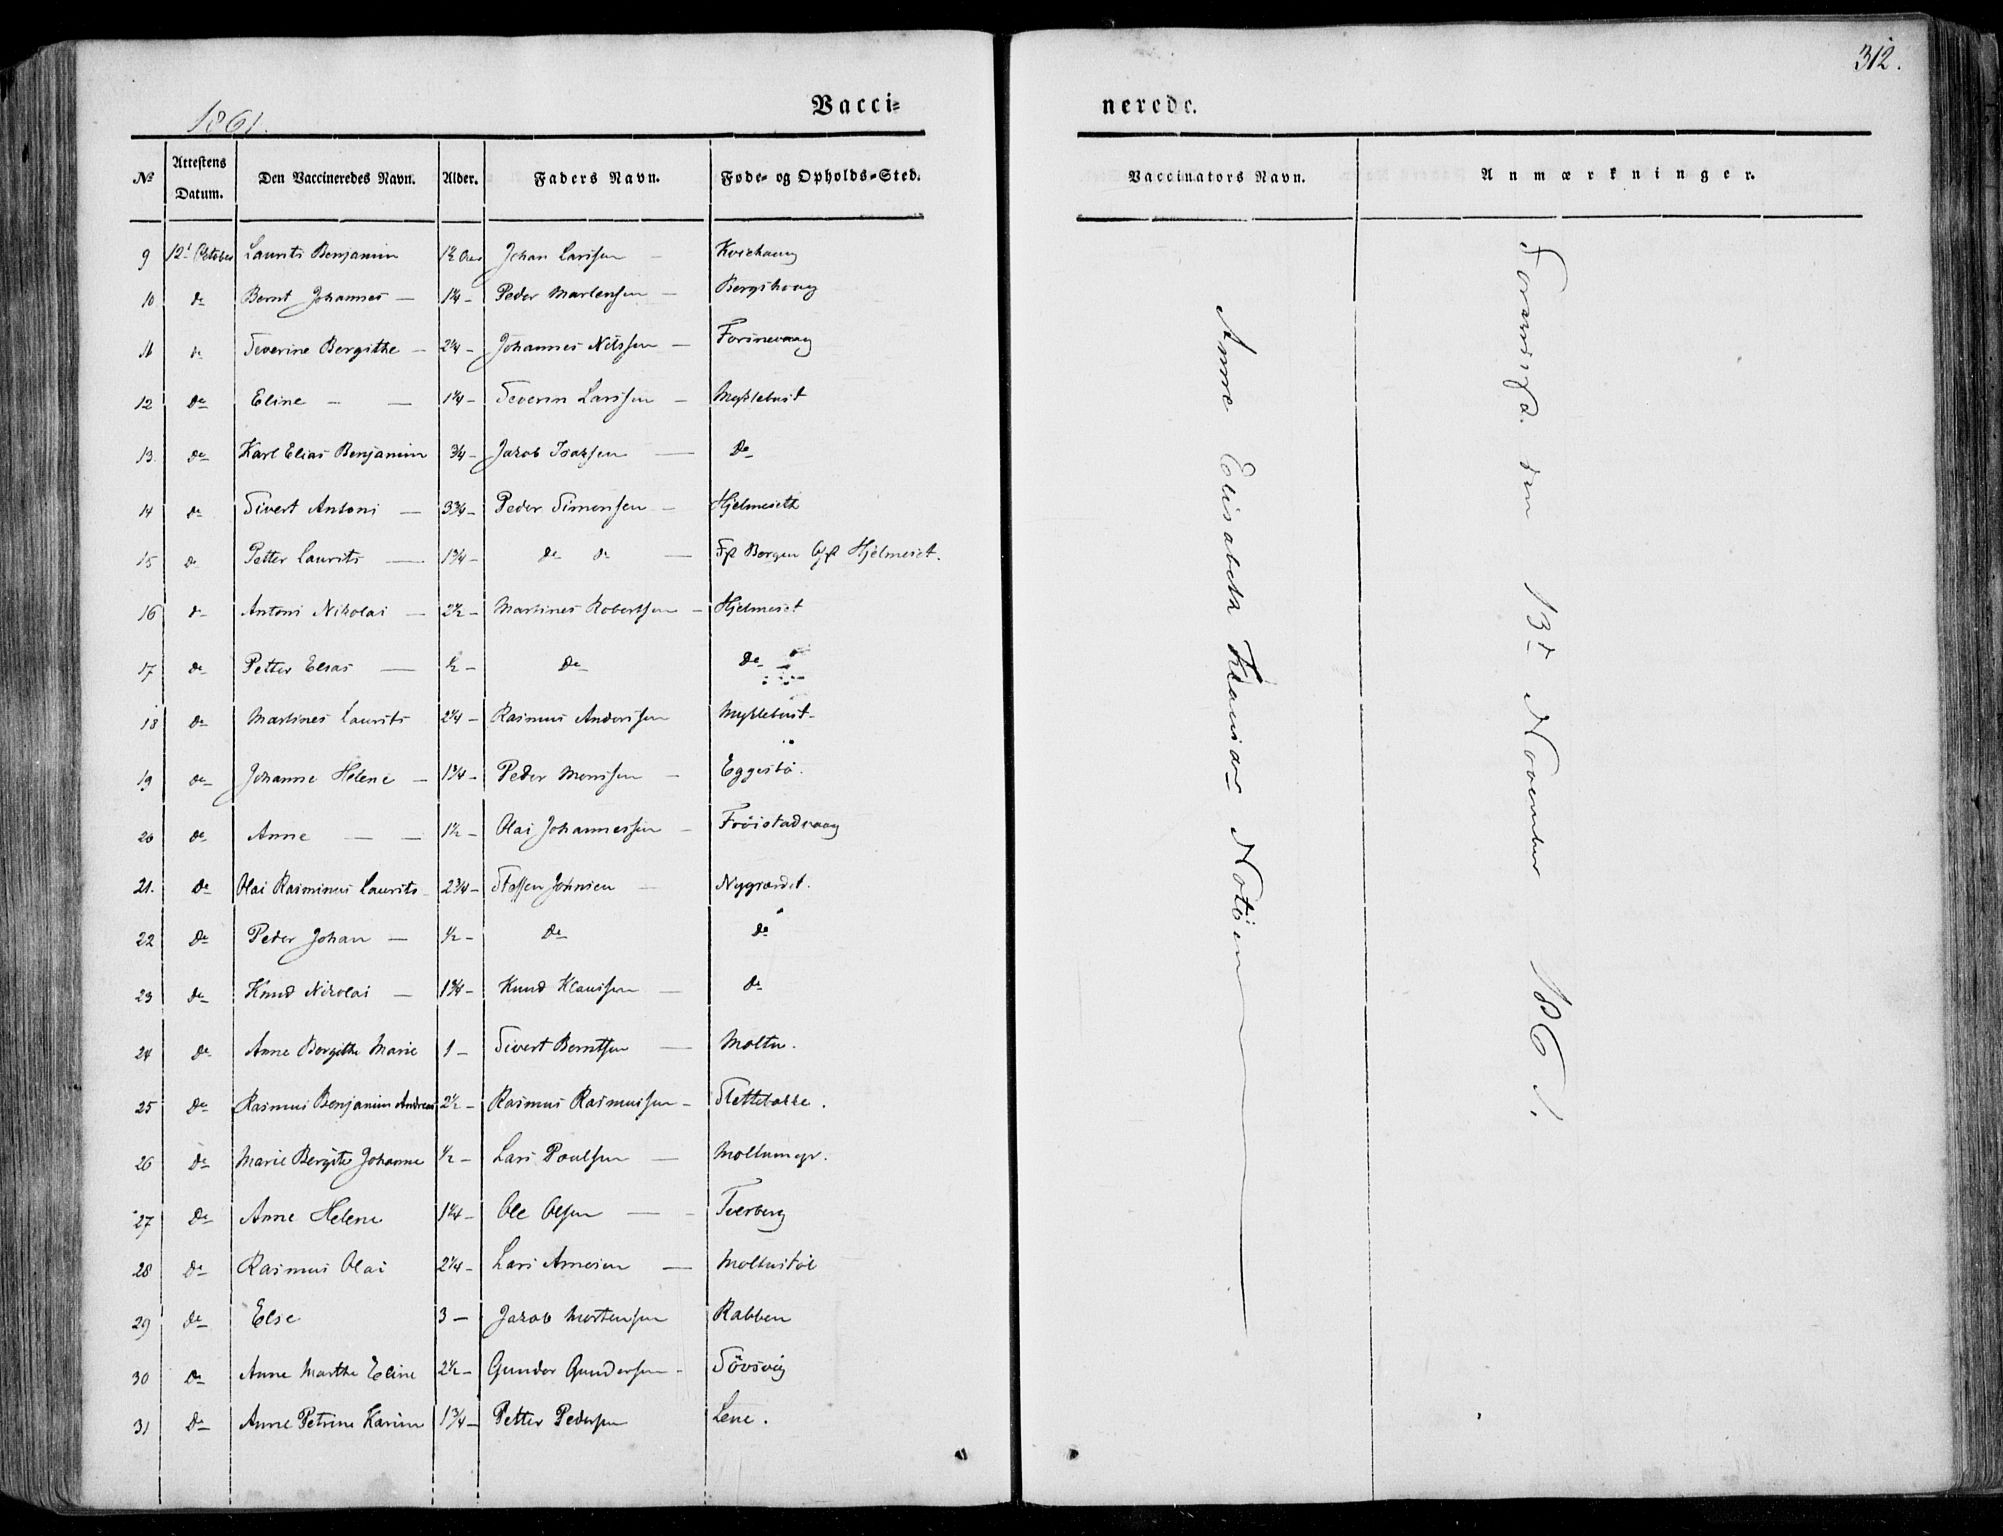 312.
1861.
Vacci=
nerede.
№ Attestens Datum. Den Vaccineredes Navn. Alder. Faders Navn. Føde- og Opholds-Sted. Vaccinators Navn. Anmærkninger.
9 12t October Laurits Benjamin 1½ Aar Johan Larssen Kvithaug
10 do Bernt Johannes — 1¼ — Peder Martensen — Bergshaug
11 do Severine Bergithe — 2¼ — Johannes Nilssen — Forsnevaag
12 do Eline — — 1¼ — Severin Larssen — Myklebust
13. do Karl Elias Benjamin ¾ — Jakob Isaksen — do
14 do Sivert Antoni — 3¾ — Peder Simonsen — Hjelmeseth
15 do Petter Laurits — 1¾ — do do — Fst Bergen Ofst Hjelmeset.
16 do Antoni Nikolai — 2½ — Martines Robertsen — Hjelmeset
17 do Petter Elias — ½ — do do
18 do Martines Laurits 2¼ — Rasmus Anderssen Myklebust
19 do Johanne Helene — 1¾ — Peder Monssen — Eggesbø.
20 do Anne — — 1½ — Olai Johannessen — Frøistadvaag
21. do Olai Rasminus Laurits 2¾ — Steffen Johnsen — Nygrædet.
22 do Peder Johan — ½ — do do
23 do Knud Nikolai — 1¾ — Knud Klaussen — do
24 do Anne Bergithe Marie 1 — Sivert Berntsen — Moltu.
25 do Rasmus Benjamin Andreas 2½ — Rasmus Rasmussen — Slettebakke.
26 do Marie Bergite Johanne ½ — Lars Poulsen — Moltumyr.
27 do Anne Helene 1¼ — Ole Olsen — Tverberg
28 do Rasmus Olai 2¼ — Lars Arnesen — Moltustøl
29 do Else 3 — Jakob Mortensen Rabben
30 do Anne Marthe Eline 2½ — Gunder Gundersen — Søvsvig
31 do Anne Petrine Karine 1¾ — Petter Pedersen Lene.
Anne Elisabeth Notøen
den 13d November 1861.